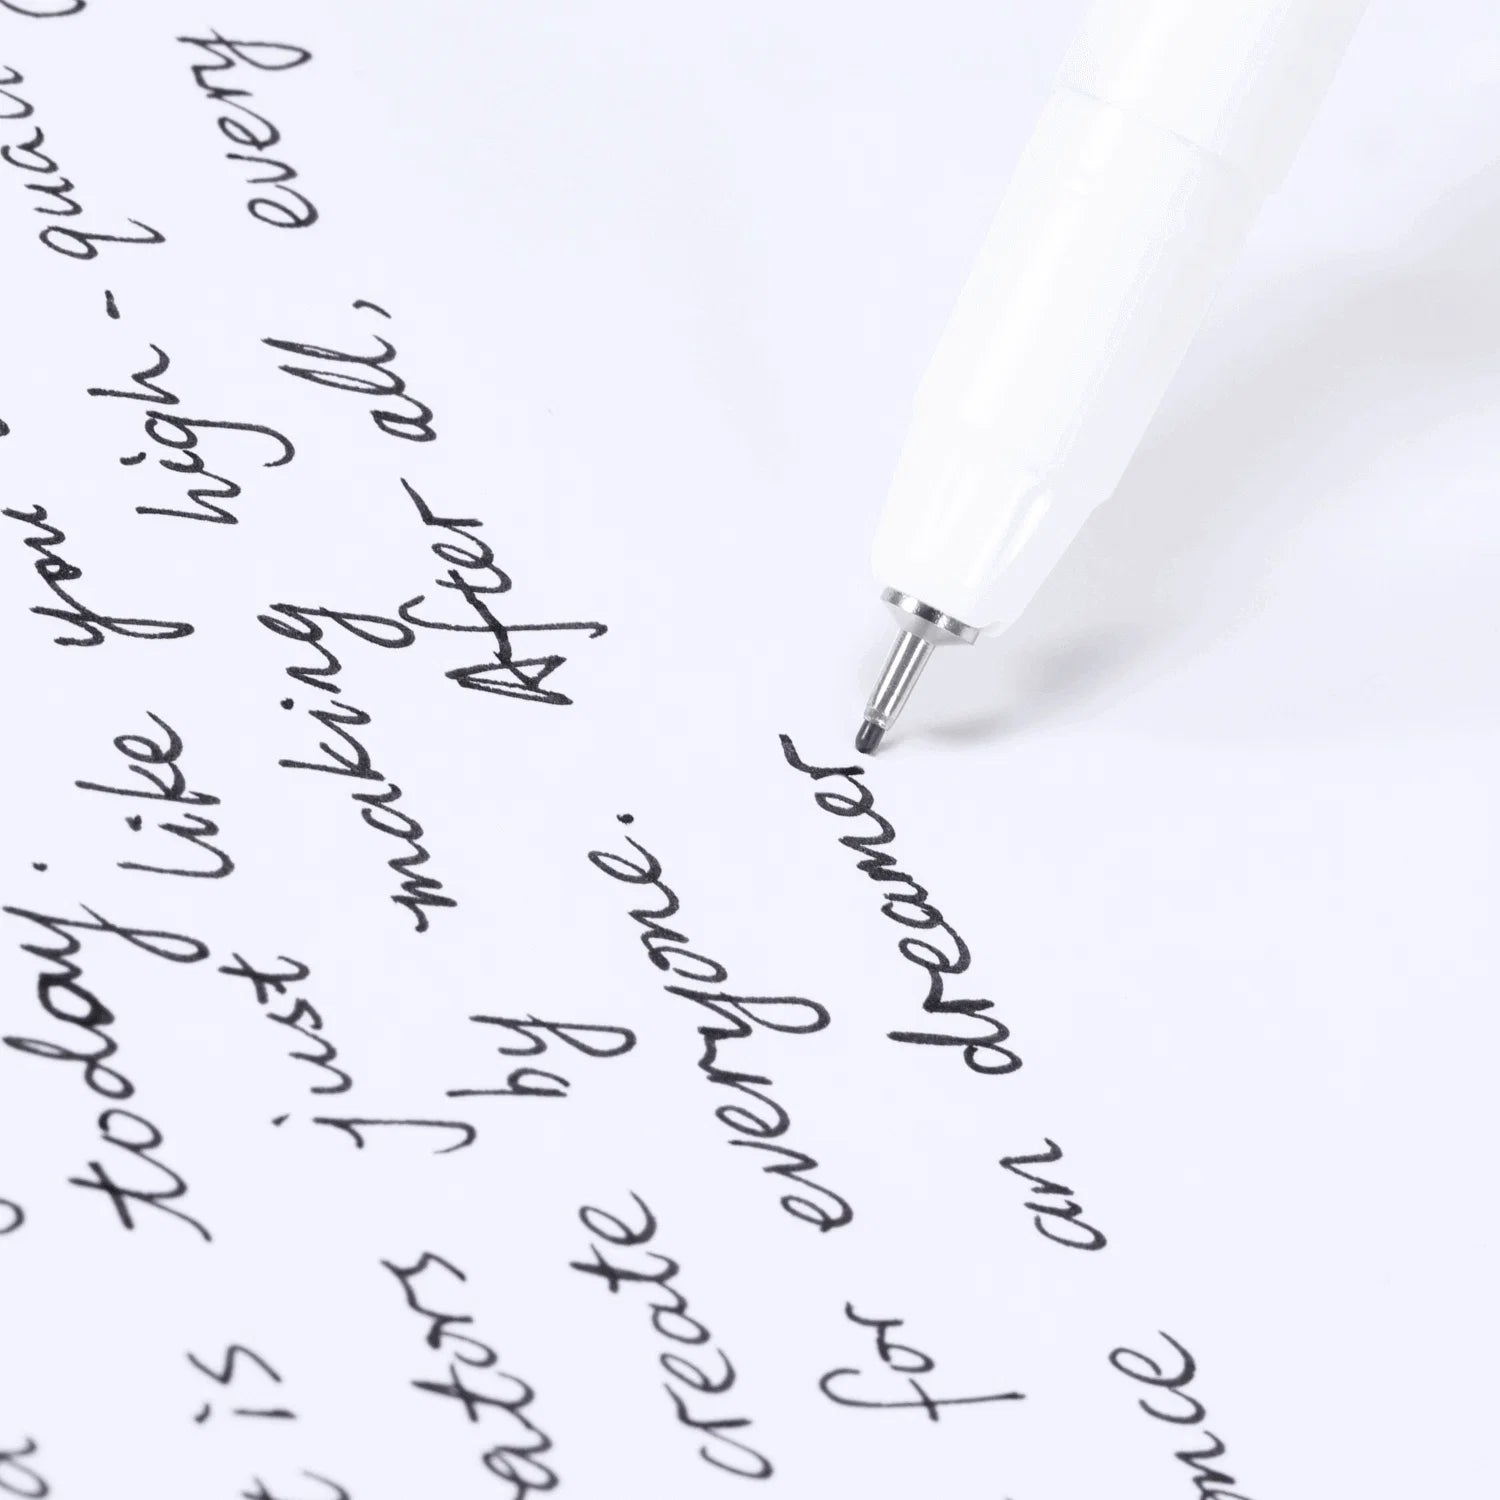 is today.
just like you
create by making high-
for everyone. After all, every
an dreamer